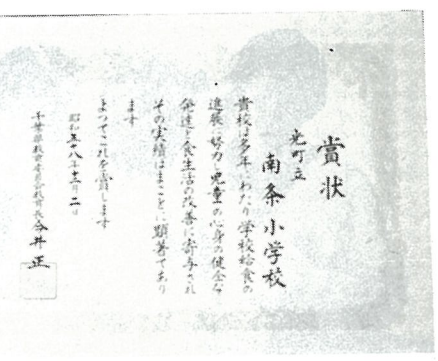 賞状
光町立
南条小学校
貴校は多年にわたり学校給食の
進展に努力し児童の心身の健全な
発達と食生活の改善に寄与され
その実績はまことに顕著であり
ます
よってこれを賞します
昭和五十八年十二月二日
千葉県教育委員会教育長 今井 正